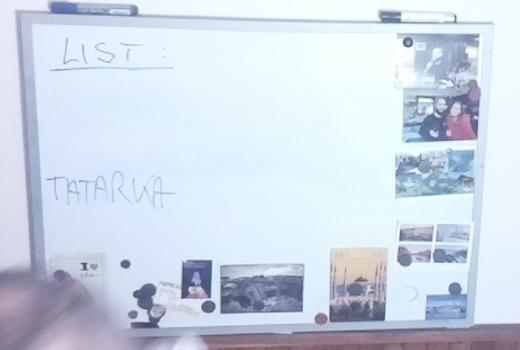 LIST:
TATARKA
I ♥